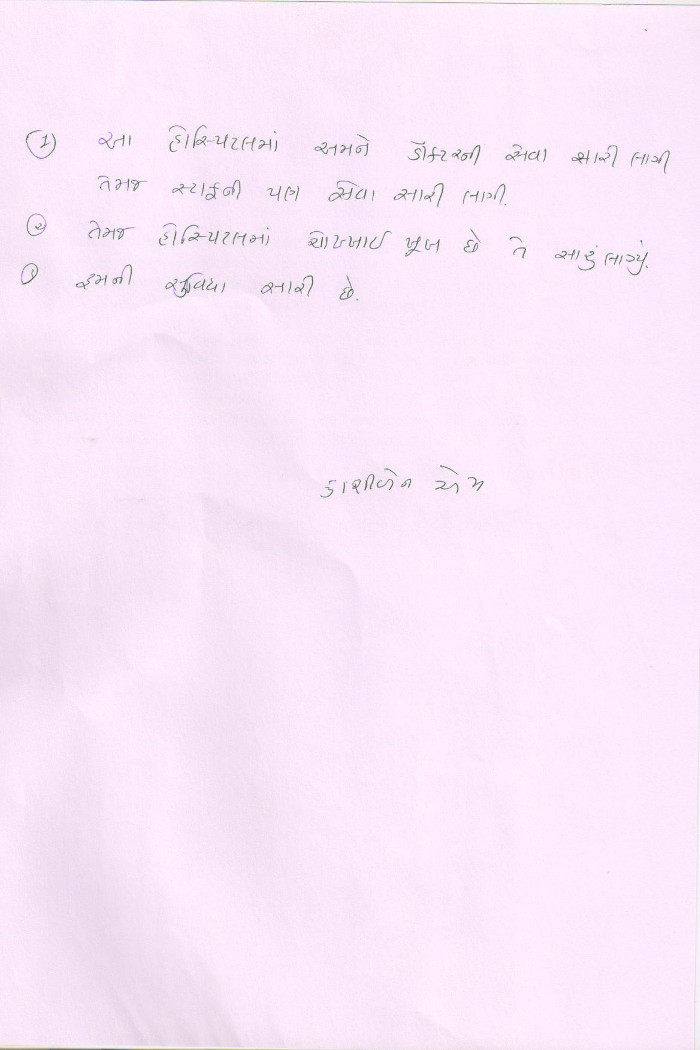 (1) આ હોસ્પિટલમાં અમને ડૉકટરની સેવા સારી લાગી
તેમજ સ્ટાફની પણ સેવા સારી લાગી.
(૨) તેમજ હોસ્પિટલમાં ચોખ્ખાઈ ખૂબ છે તે સારું લાગ્યું.
(3) રૂમની સુવિધા સારી છે.
કાશીબેન એમ